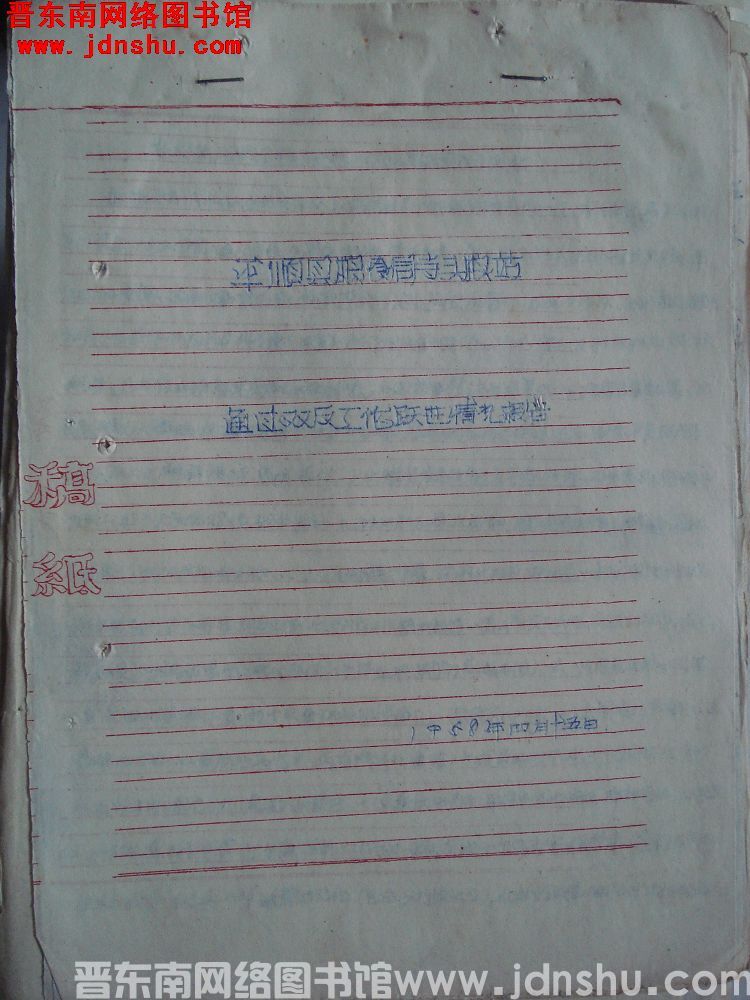 晋东南网络图书馆
www.jdnshu.com
平顺县服务局
通过双反工作跃进情况报告
稿
紙
1958年四月十五日
晋东南网络图书馆www.jdnshu.com